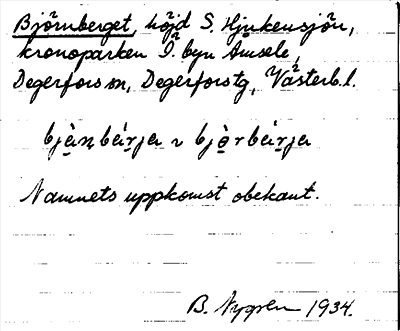 Björnberget, höjd S. Hjukensjön,
kronoparken Ö. byn Åmsele,
Degerfors sn, Degerforstg, Västerb.l.
bjä̀ṇbǽrja ~ bjə̀rbǽrja
Namnets uppkomst obekant.
B. Nygren 1934.